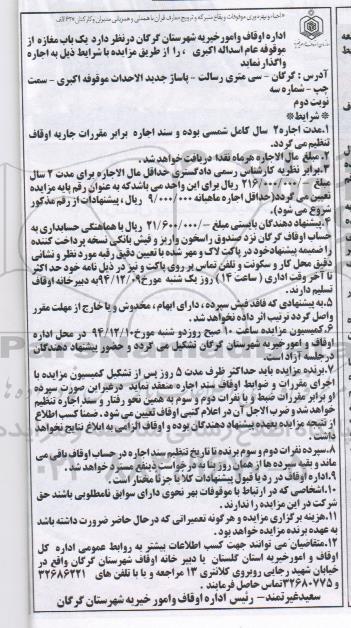 «احیاء و بهره وری موقوفات و بقاع متبرکه و ترویج معارف قرآن با همدلی و همزبانی مدیران و کارکنان»
اداره اوقاف وامور خیریه شهرستان گرگان در نظر دارد یک باب مغازه از
موقوفه عام اسداله اکبری ، را از طریق مزایده با شرایط ذیل به اجاره
واگذار نماید
آدرس : گرگان – سی متری رسالت – پاساژ جدید الاحداث موقوفه اکبری – سمت
چپ – شماره سه
نوبت دوم
* شرایط*
۱.مدت اجاره ۲ سال کامل شمسی بوده و سند اجاره برابر مقررات جاریه اوقاف
تنظیم می گردد.
۲. مبلغ مال الاجاره هر ماه نقدا دریافت خواهد شد .
۳.برابر نظریه کارشناس رسمی دادگستری حداقل مال الاجاره برای مدت ۲ سال
مبلغ ۲۱۶/۰۰۰/۰۰۰ ریال برای این واحد می باشد که به عنوان رقم پایه مزایده
تعیین می گردد(حداقل اجاره ماهیانه ۹/۰۰۰/۰۰۰ ریال ، پیشنهادات از رقم مذکور
شروع می شود).
۴.پیشنهاد دهندگان بایستی مبلغ ۲۱/۶۰۰/۰۰۰/- ریال با هماهنگی حسابداری به
حساب اوقاف گرگان نزد صندوق راسخون واریز و فیش بانکی نسخه پرداخت کننده
را ضمیمه پیشنهاد خود در پاکت لاک و مهر شده با تعیین دقیق رقبه مورد نظر و نشانی
دقیق محل کار و سکونت و تلفن تماس بر روی پاکت و نیز در ذیل نامه خود حداکثر
تا آخر وقت اداری ( ساعت ۱۴ ) روز یک شنبه مورخ ۹۴/۱۲/۰۹ به دبیرخانه اوقاف
تسلیم دارند.
۵.به پیشنهادی که فاقد فیش سپرده ، دارای ابهام ، مخدوش و یا خارج از مهلت مقرر
واصل گردد ترتیب اثر داده نخواهد شد.
۶.کمیسیون مزایده ساعت ۱۰ صبح روز دو شنبه مورخ ۹۴/۱۲/۱۰ در محل اداره
اوقاف و امور خیریه شهرستان گرگان تشکیل می گردد و حضور پیشنهاد دهندگان
در جلسه آزاد است.
۷.برنده مزایده باید حداکثر ظرف مدت ۵ روز پس از تشکیل کمیسیون مزایده با
اجرای مقررات و ضوابط اوقاف سند اجاره منعقد نماید در غیر این صورت سپرده
او برابر مقررات ضبط و با نفرات دوم و سوم به همین نحو رفتار و سند اجاره تنظیم
خواهد شد و ضرب الاجل آن در اعلام کتبی اوقاف تعیین می شود . ضمنا کسب اطلاع
از نتیجه مزایده بعهده پیشنهاد دهندگان بوده و اوقاف الزامی به ابلاغ نتایج نخواهد
داشت .
۸.سپرده نفرات دوم و سوم برنده تا تاریخ تنظیم سند اجاره در حساب اوقاف باقی می
ماند و بقیه سپرده ها از همان روز بنا به درخواست ذینفع مسترد خواهد شد.
۹.اداره اوقاف در رد یا قبول پیشنهادات کلا یا جزئا مختار است .
۱۰.اشخاصی که در ارتباط با موقوفات بهر نحوی دارای سوابق نامطلوبی باشند حق
شرکت در این مزایده را ندارند.
۱۱.هزینه برگزاری مزایده و هر گونه تعمیراتی که در حال حاضر ضرورت داشته باشد
به عهده برنده مزایده خواهد بود.
۱۲.متقاضیان می توانند جهت کسب اطلاعات بیشتر به روابط عمومی اداره کل
اوقاف و امور خیریه استان گلستان یا دبیر خانه اوقاف شهرستان گرگان واقع در
خیابان شهید رجایی روبروی کلانتری ۱۳ مراجعه و یا با تلفن های ۳۲۶۸۶۲۲۱
و ۳۲۶۸۰۷۷۵ تماس حاصل فرمایند .
سعید غیرتمند – رئیس اداره اوقاف وامور خیریه شهرستان گرگان